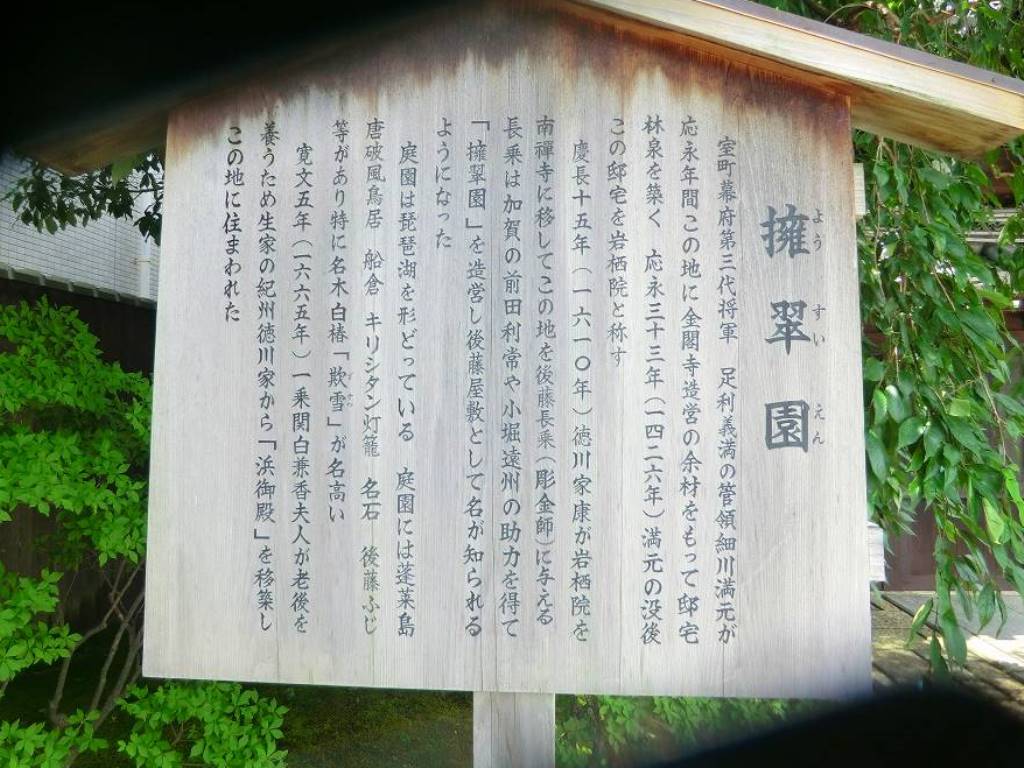 擁翠園
ようすいえん
室町幕府第三代将軍 足利義満の管領細川満元が
応永年間この地に金閣寺造営の余材をもって邸宅
林泉を築く 応永三十三年(一四二六年)満元の没後
この邸宅を岩栖院と称す
慶長十五年(一六一〇年)徳川家康が岩栖院を
南禅寺に移してこの地を後藤長乗(彫金師)に与える
長乗は加賀の前田利常や小堀遠州の助力を得て
「擁翠園」を造営し後藤屋敷として名が知られる
ようになった
庭園は琵琶湖を形どっている 庭園には蓬莱島
唐破風鳥居 船倉 キリシタン灯籠 名石 後藤ふじ
等があり特に名木白椿「欺雪」が名高い
寛文五年(一六六五年)一乗関白兼香夫人が老後を
養うため生家の紀州徳川家から「浜御殿」を移築し
この地に住まわれた